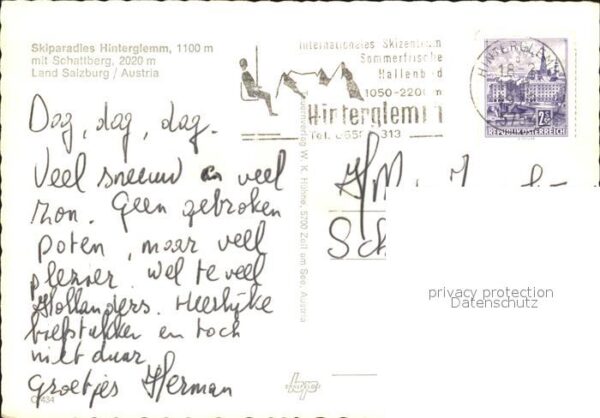 Skiparadies Hinterglemm, 1100 m
mit Schattberg, 2020 m
Land Salzburg / Austria
Internationales Skizentrum
Sommerfrische
Hallenbad
1050-2200m
Hinterglemm
Tel. 313
HINTERGLEMM
REPUBLIK ÖSTERREICH
Dag, dag, dag.
Veel sneeuw en veel
zon. Geen gebroken
poten, maar veel
plezier. Wel te veel
Hollanders. Heerlijke
biefstukken en toch
niet duur
Groetjes Herman
W. K. Hühne, 5700 Zell am See, Austria
privacy protection
Datenschutz